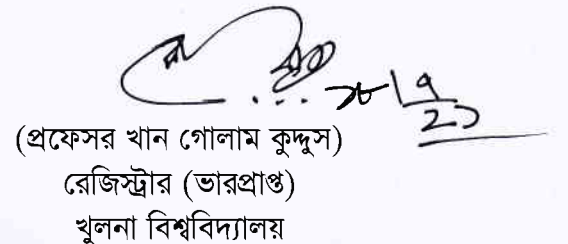 (প্রফেসর খান গোলাম কুদ্দুস)
রেজিস্ট্রার (ভারপ্রাপ্ত)
খুলনা বিশ্ববিদ্যালয়